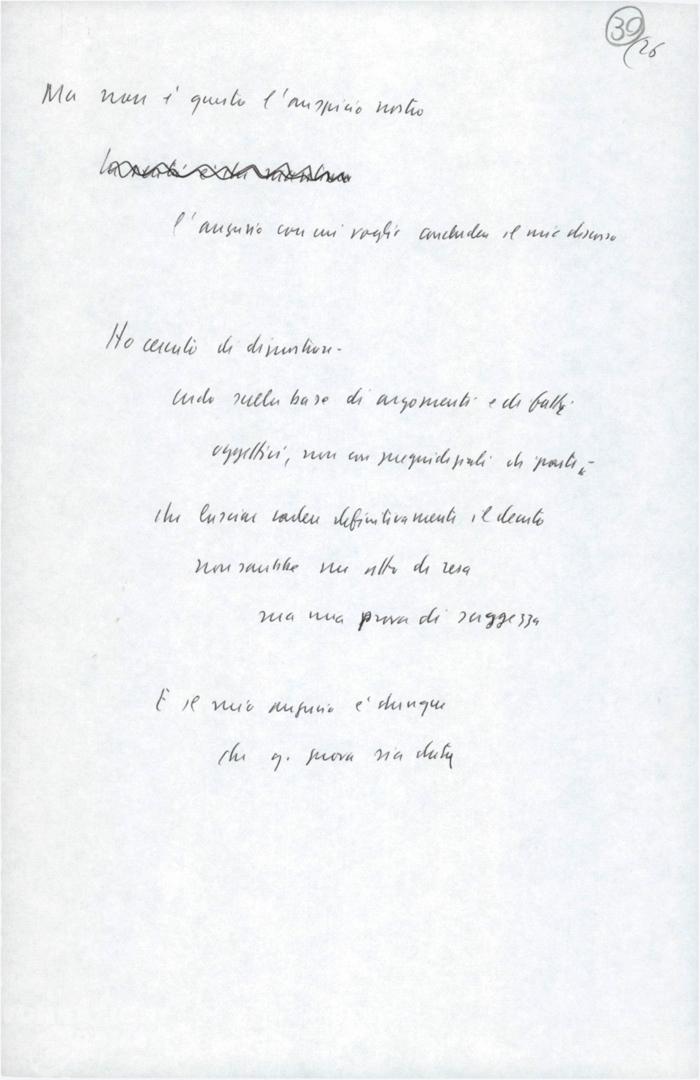 39/26
Ma non è questo l'auspicio nostro
l'augurio con cui voglio concludere il mio discorso
Ho cercato di dimostrare-
ndo sulla base di argomenti e di fatti
oggettivi, non con pregiudiziali di parte,-
che lasciar cadere definitivamente il decreto
non sarebbe un atto di resa
ma una prova di saggezza
E il mio augurio è dunque
che q. prova sia data